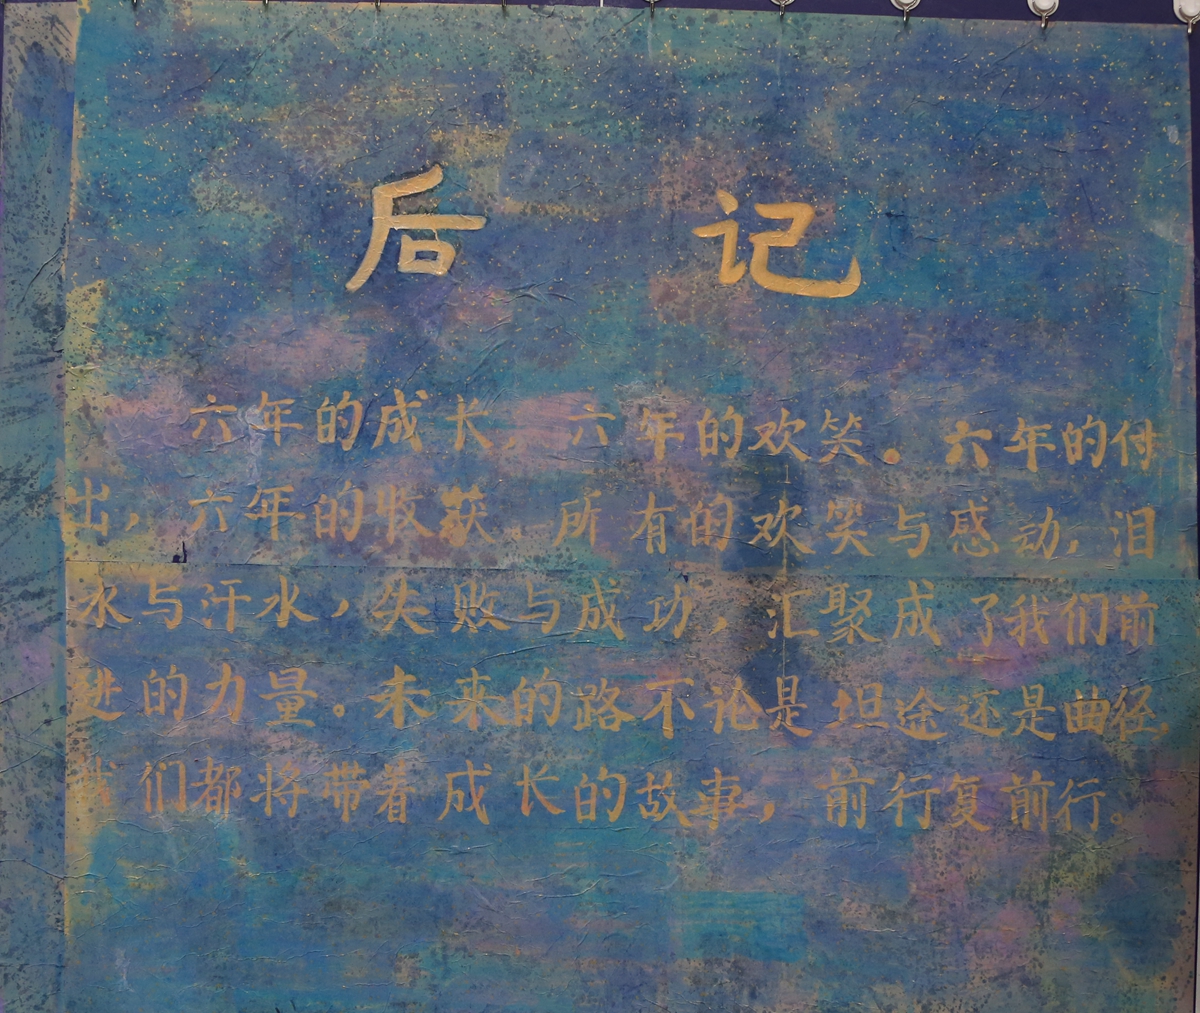 后记
六年的成长，六年的欢笑。六年的付
出，六年的收获。所有的欢笑与感动，泪
水与汗水，失败与成功，汇聚成了我们前
进的力量。未来的路不论是坦途还是曲径，
我们都将带着成长的故事，前行复前行。